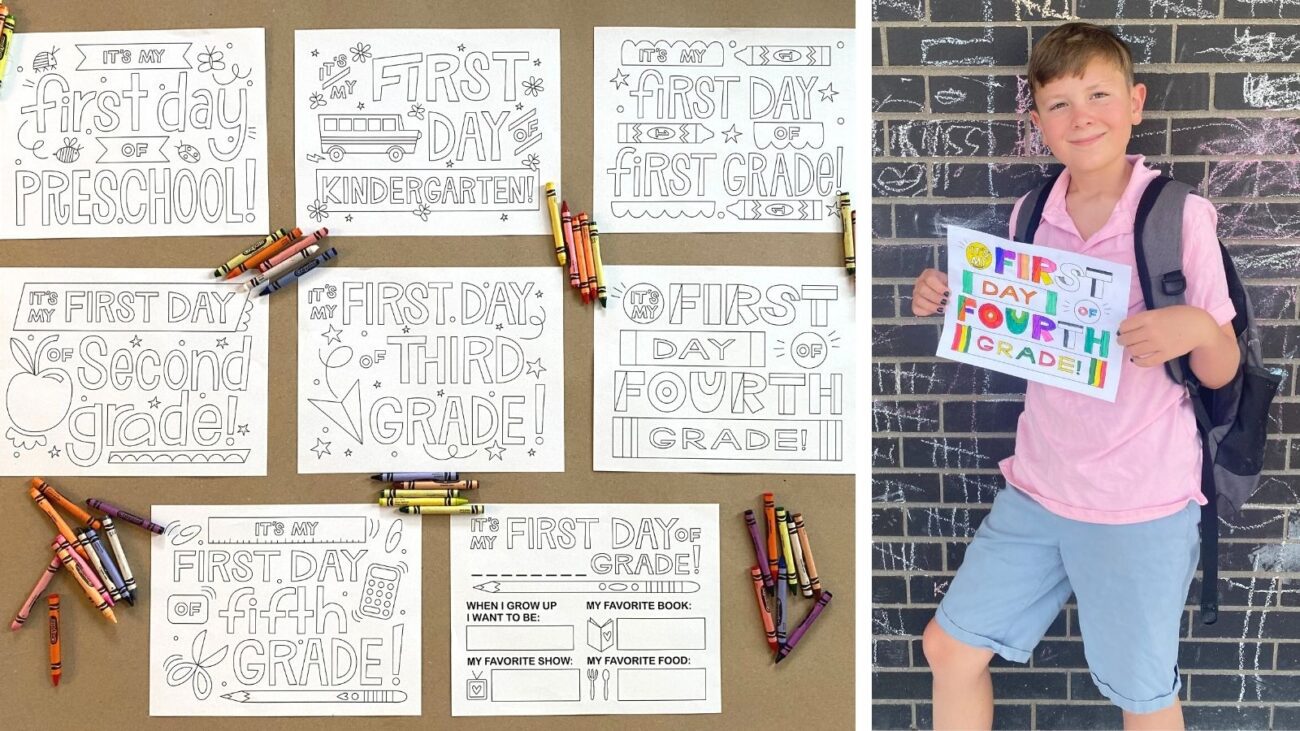 IT'S MY
first day
OF
PRESCHOOL!
IT'S
MY
FIRST
DAY
OF
KINDERGARTEN!
IT'S MY
first DAY
OF
first GRADE!
IT'S
MY
FIRST DAY
OF Second
grade!
IT'S
MY
FIRST DAY
OF THIRD
GRADE!
IT'S
MY
FIRST
DAY
OF
FOURTH
GRADE!
IT'S MY
FIRST DAY
OF fifth
GRADE!
IT'S
MY
FIRST DAY OF
GRADE!
WHEN I GROW UP
I WANT TO BE:
MY FAVORITE BOOK:
MY FAVORITE SHOW:
MY FAVORITE FOOD:
IT'S
MY
FIRST
DAY
OF
FOURTH
GRADE!